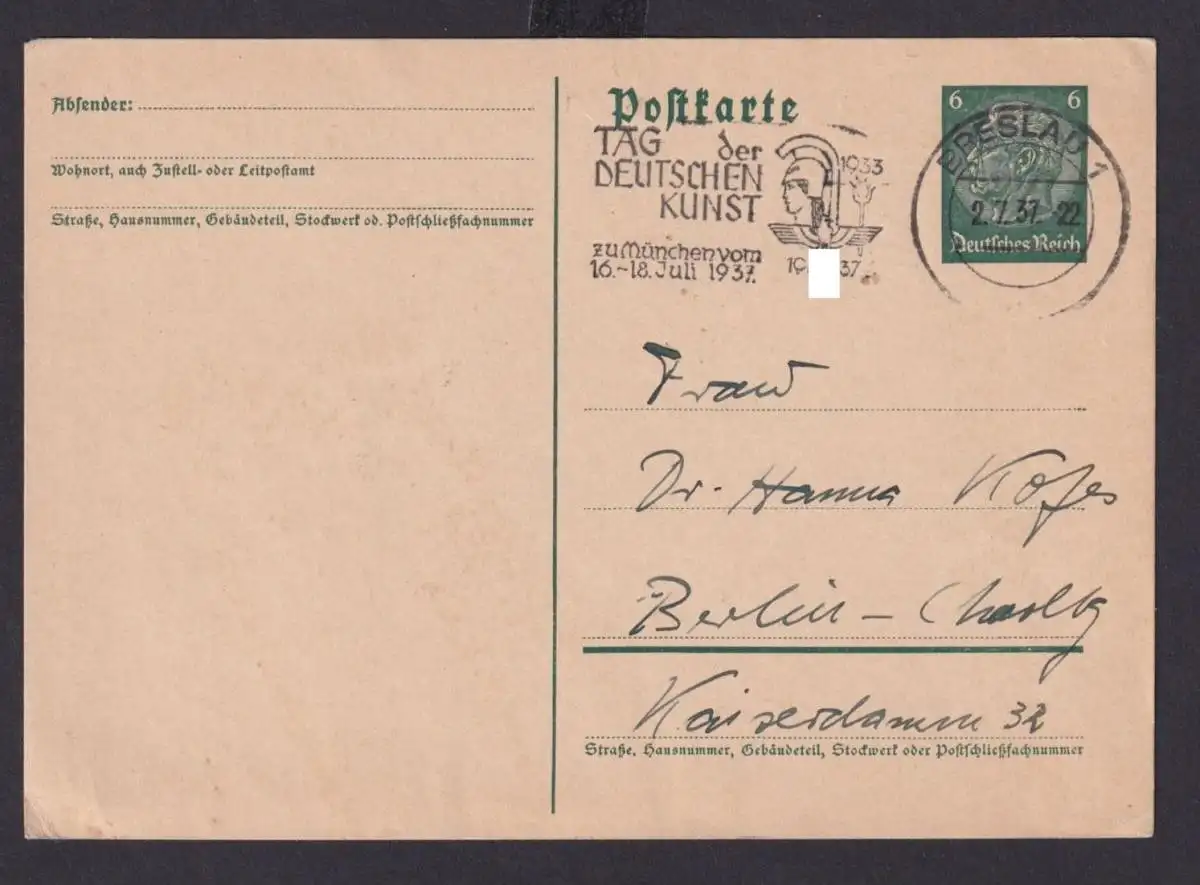 Absender:
Wohnort, auch Zustell- oder Leitpostamt
Straße, Hausnummer, Gebäudeteil, Stockwerk od. Postschließfachnummer
Postkarte
TAG der
DEUTSCHEN
KUNST
zu München vom
16.-18. Juli 1937.
1933
19 37
6 6
BRESLAU 1
2.7.37-22
Deutsches Reich
Frau
Dr. Hanna
Berlin - Charltg
Kaiserdamm 32
Straße, Hausnummer, Gebäudeteil, Stockwerk oder Postschließfachnummer